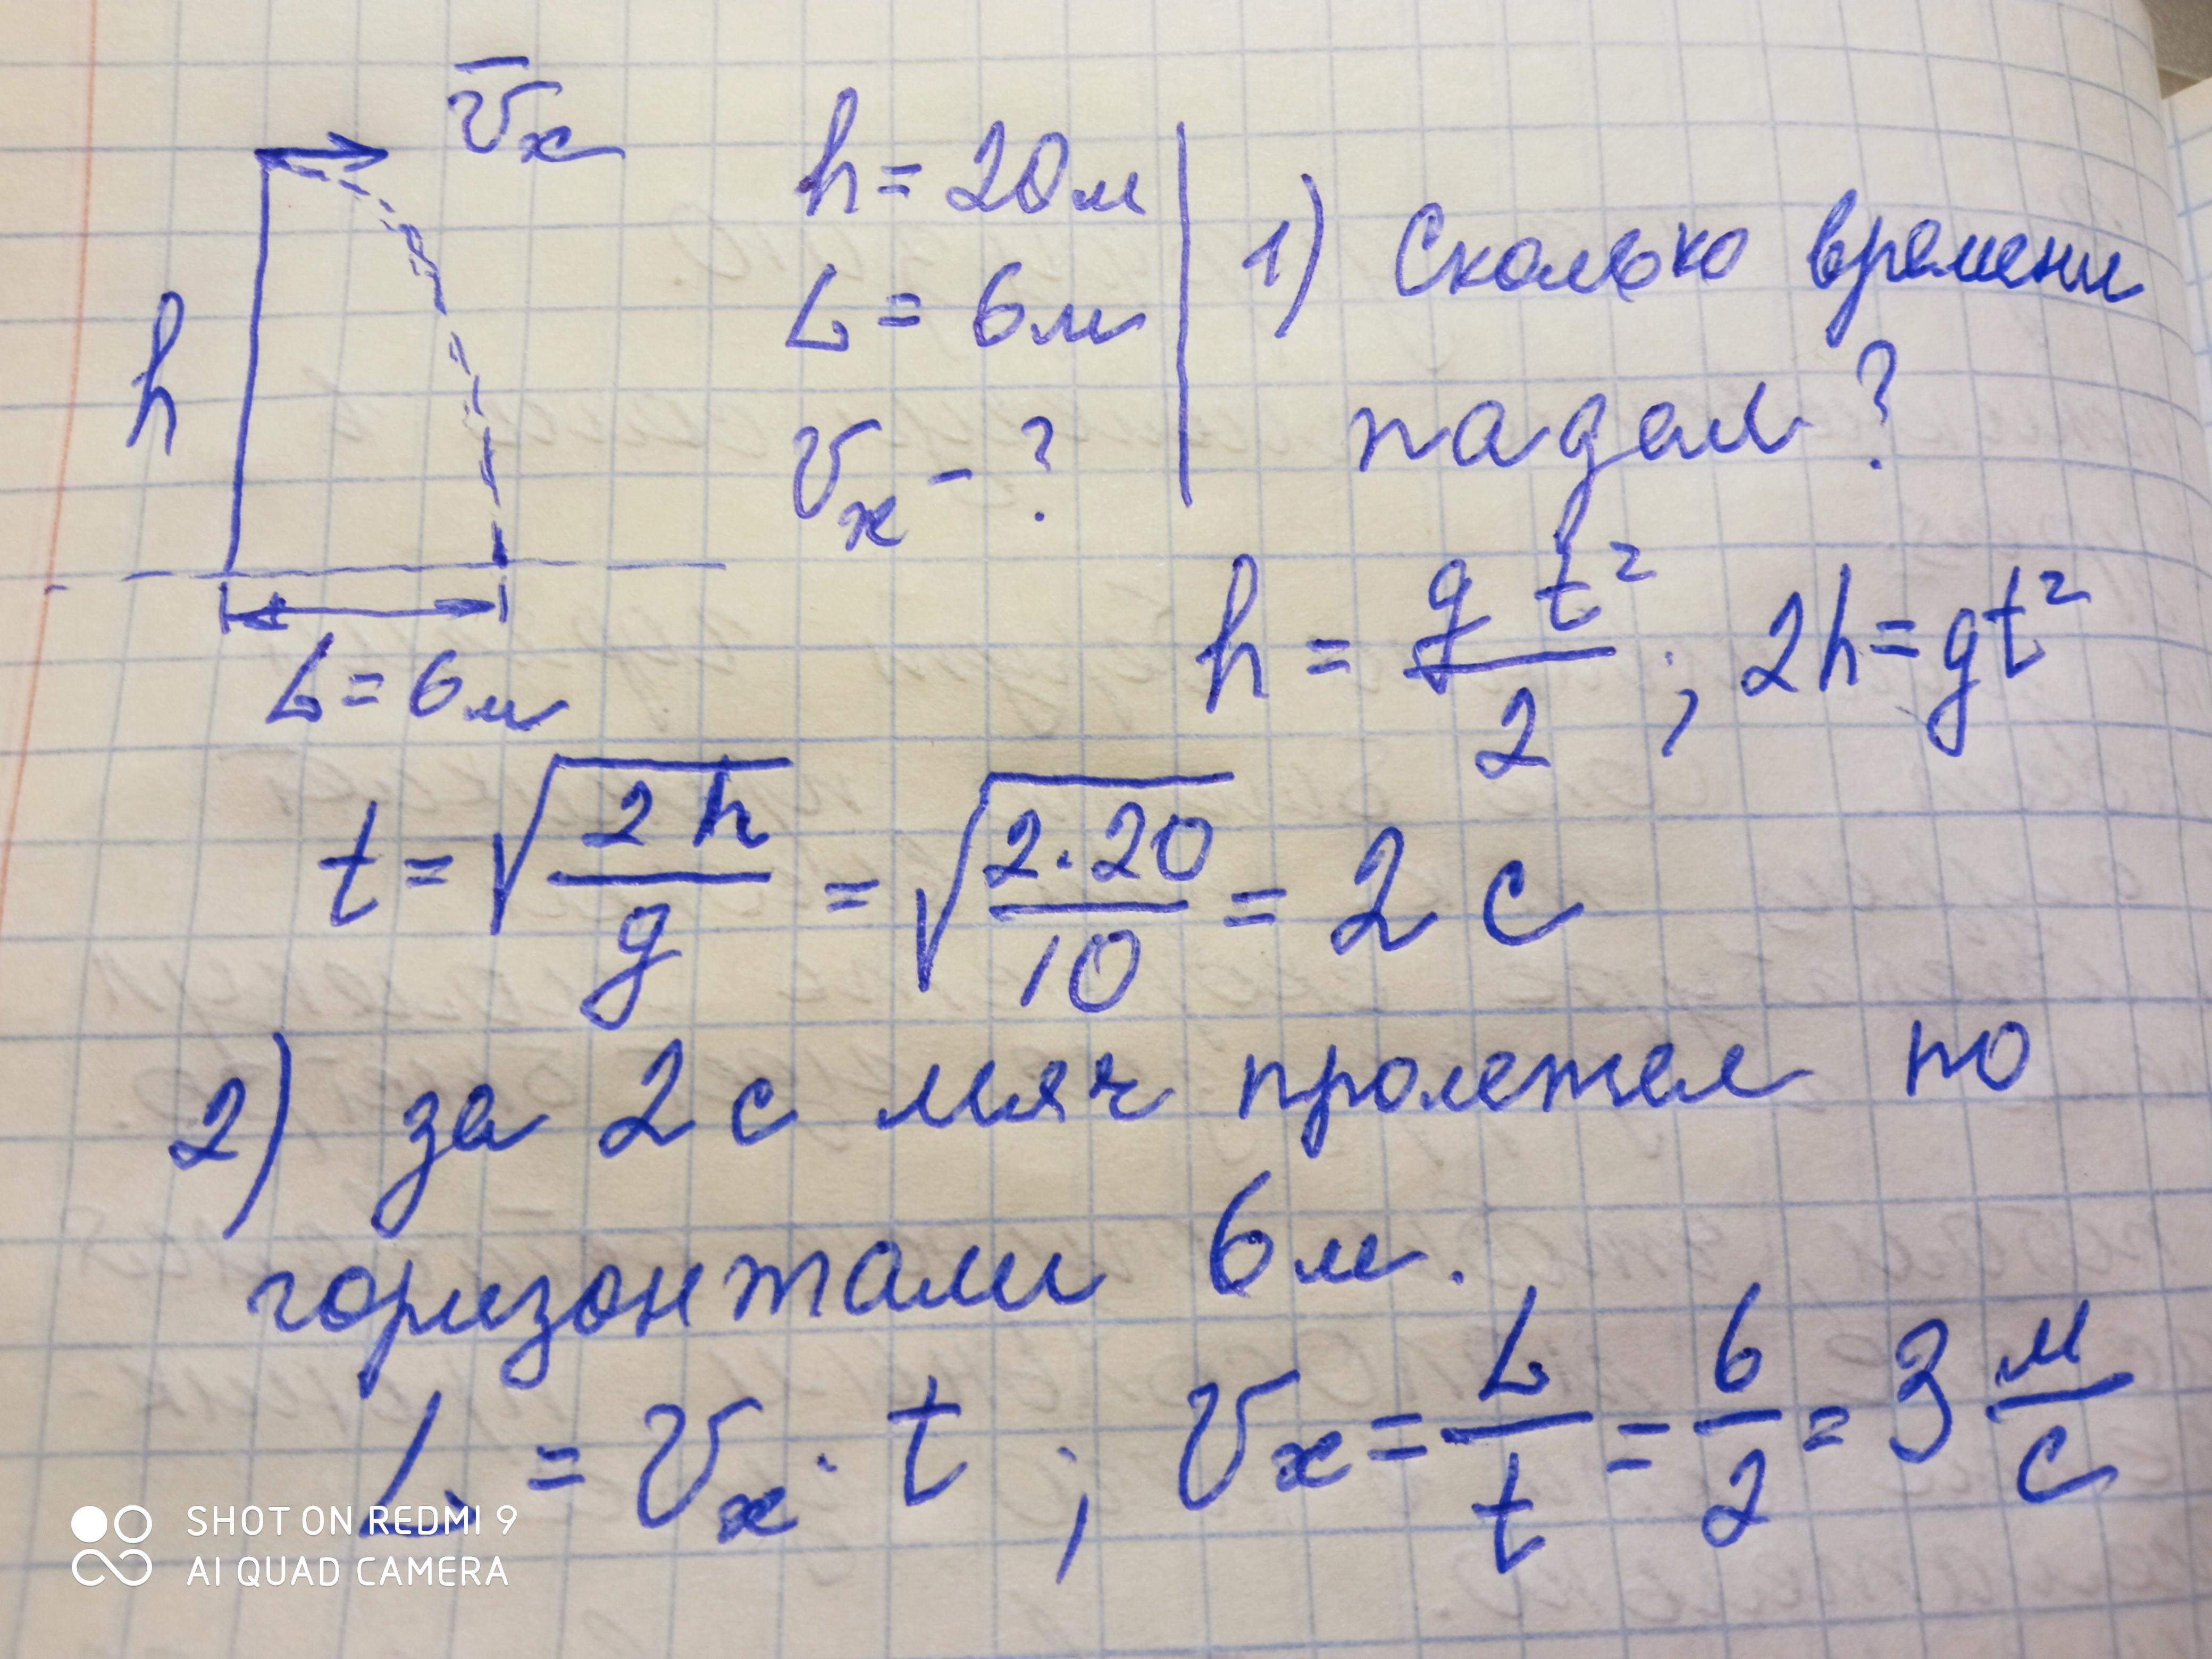 v̄ₓ
h = 20 м
L = 6 м
vₓ - ?
h
L = 6 м
1) Сколько времени
падал ?
h = gt²/2 ; 2h = gt²
t = √(2h/g) = √(2·20/10) = 2 с
2) за 2 с мяч пролетел по
горизонтали 6 м.
L = vₓ · t ; vₓ = L/t = 6/2 = 3 м/с
SHOT ON REDMI 9
AI QUAD CAMERA